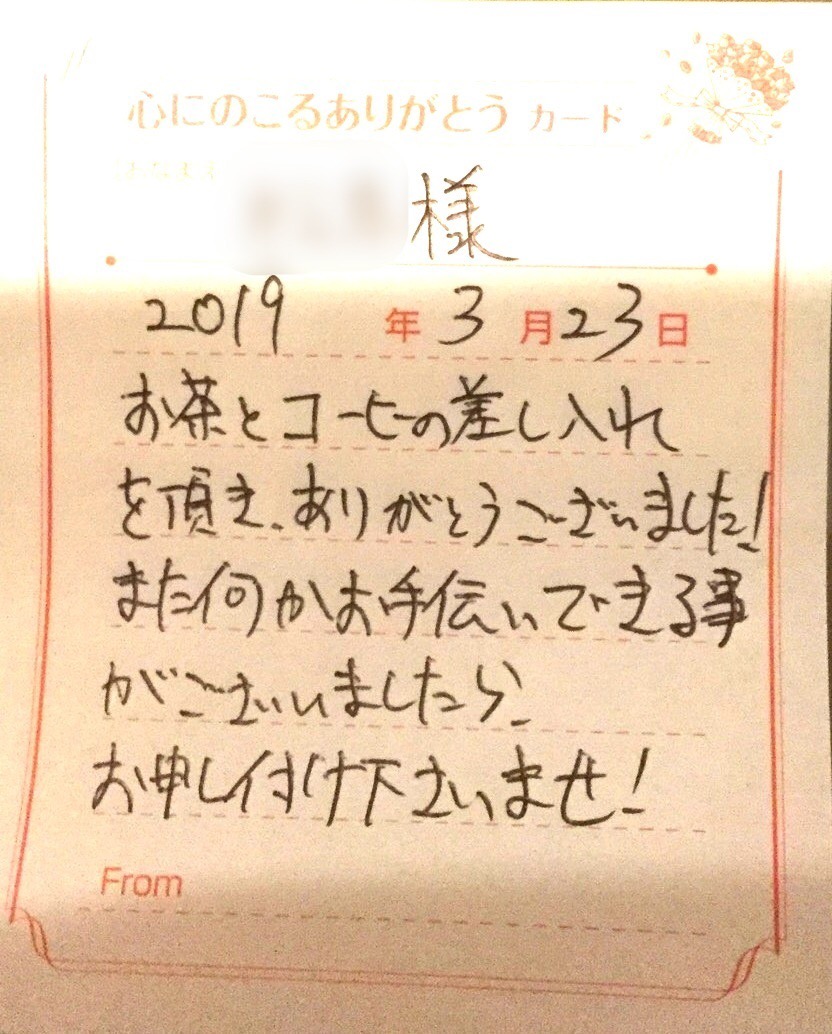 心にのこるありがとう カード
おなまえ
様
2019 年 3 月 23 日
お茶とコーヒーの差し入れ
を頂き、ありがとうございました!
また何かお手伝いできる事
がございましたら、
お申し付け下さいませ!
From